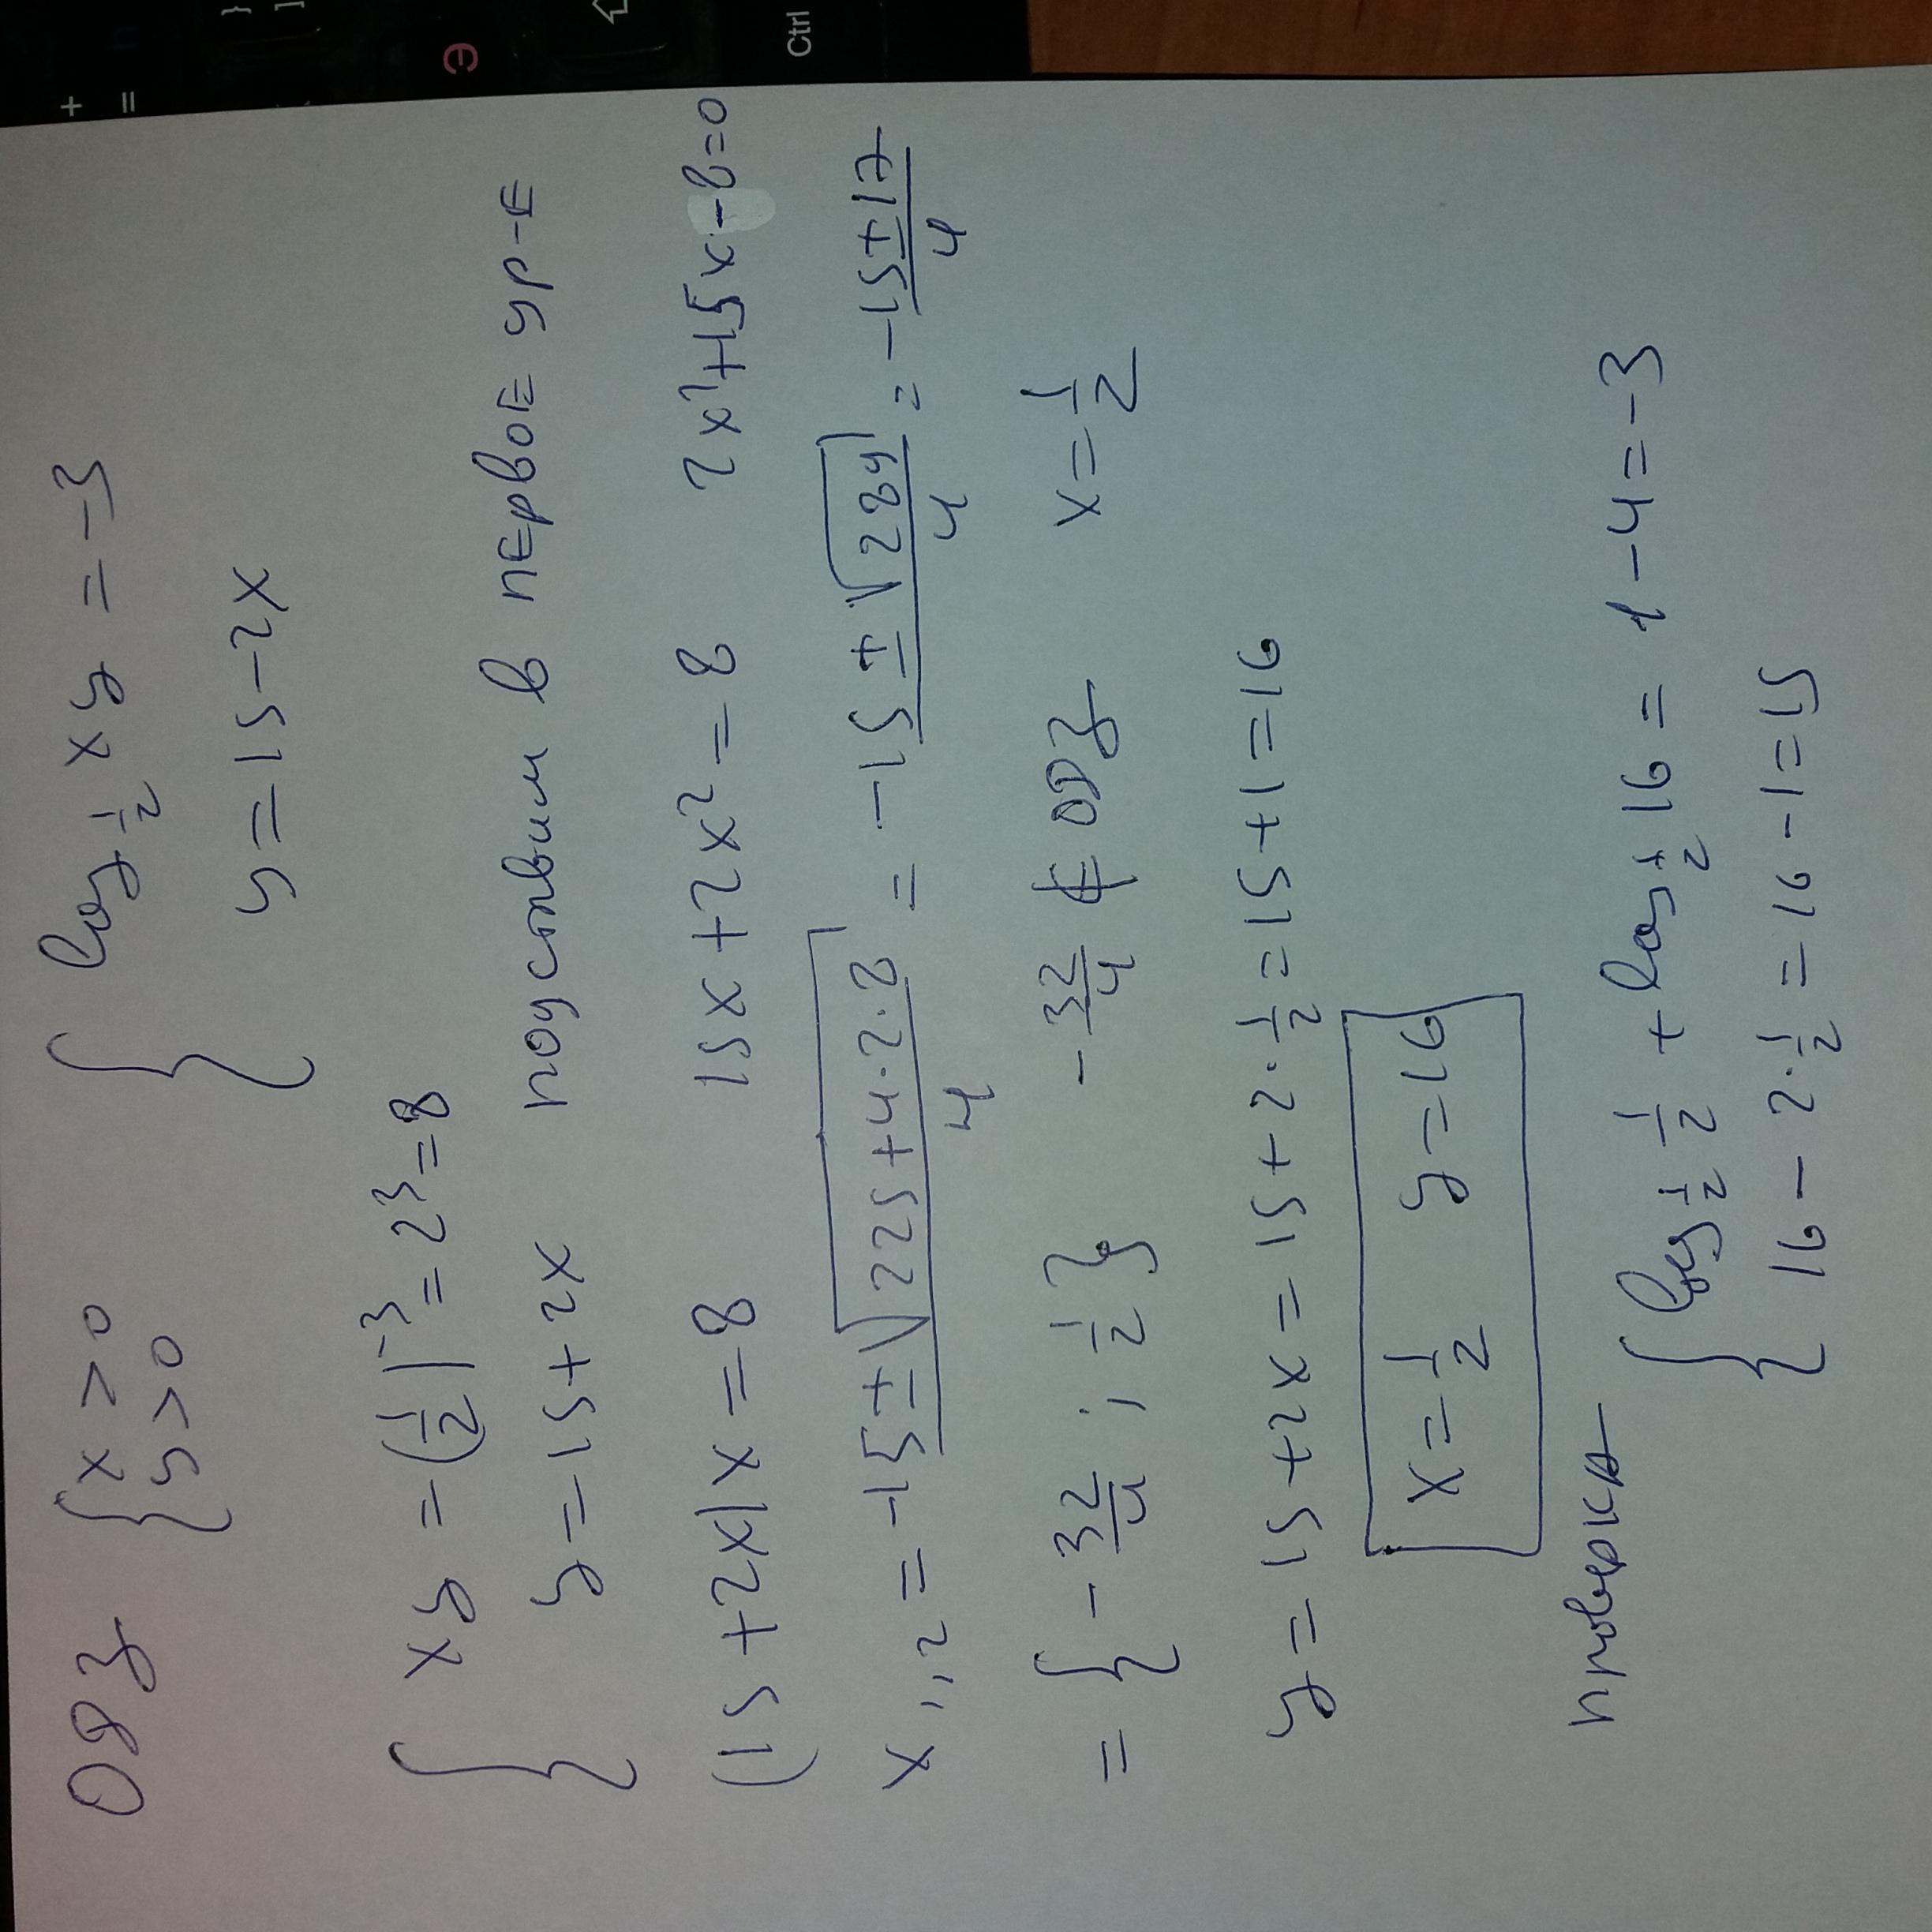 ОДЗ { x > 0 { log 1/2 xy = -3
y > 0 y = 15 - 2x
{ xy = (1/2)^-3 = 2^3 = 8
y = 15 + 2x подставим в первое ур-е
(15 + 2x) x = 8 15x + 2x² = 8 2x² + 15x - 8 = 0
x₁,₂ = (-15 ± √(225 + 4·2·8))/4 = (-15 ± √289)/4 = (-15 ± 17)/4
= { -32/4 ; 1/2 } -32/4 ∉ ОДЗ x = 1/2
y = 15 + 2x = 15 + 2·1/2 = 15 + 1 = 16
x = 1/2 y = 16
проверка { log 1/2 1/2 + log 1/2 16 = 1 - 4 = -3
16 - 2·1/2 = 16 - 1 = 15
+
=
}
]
Є
Ctrl